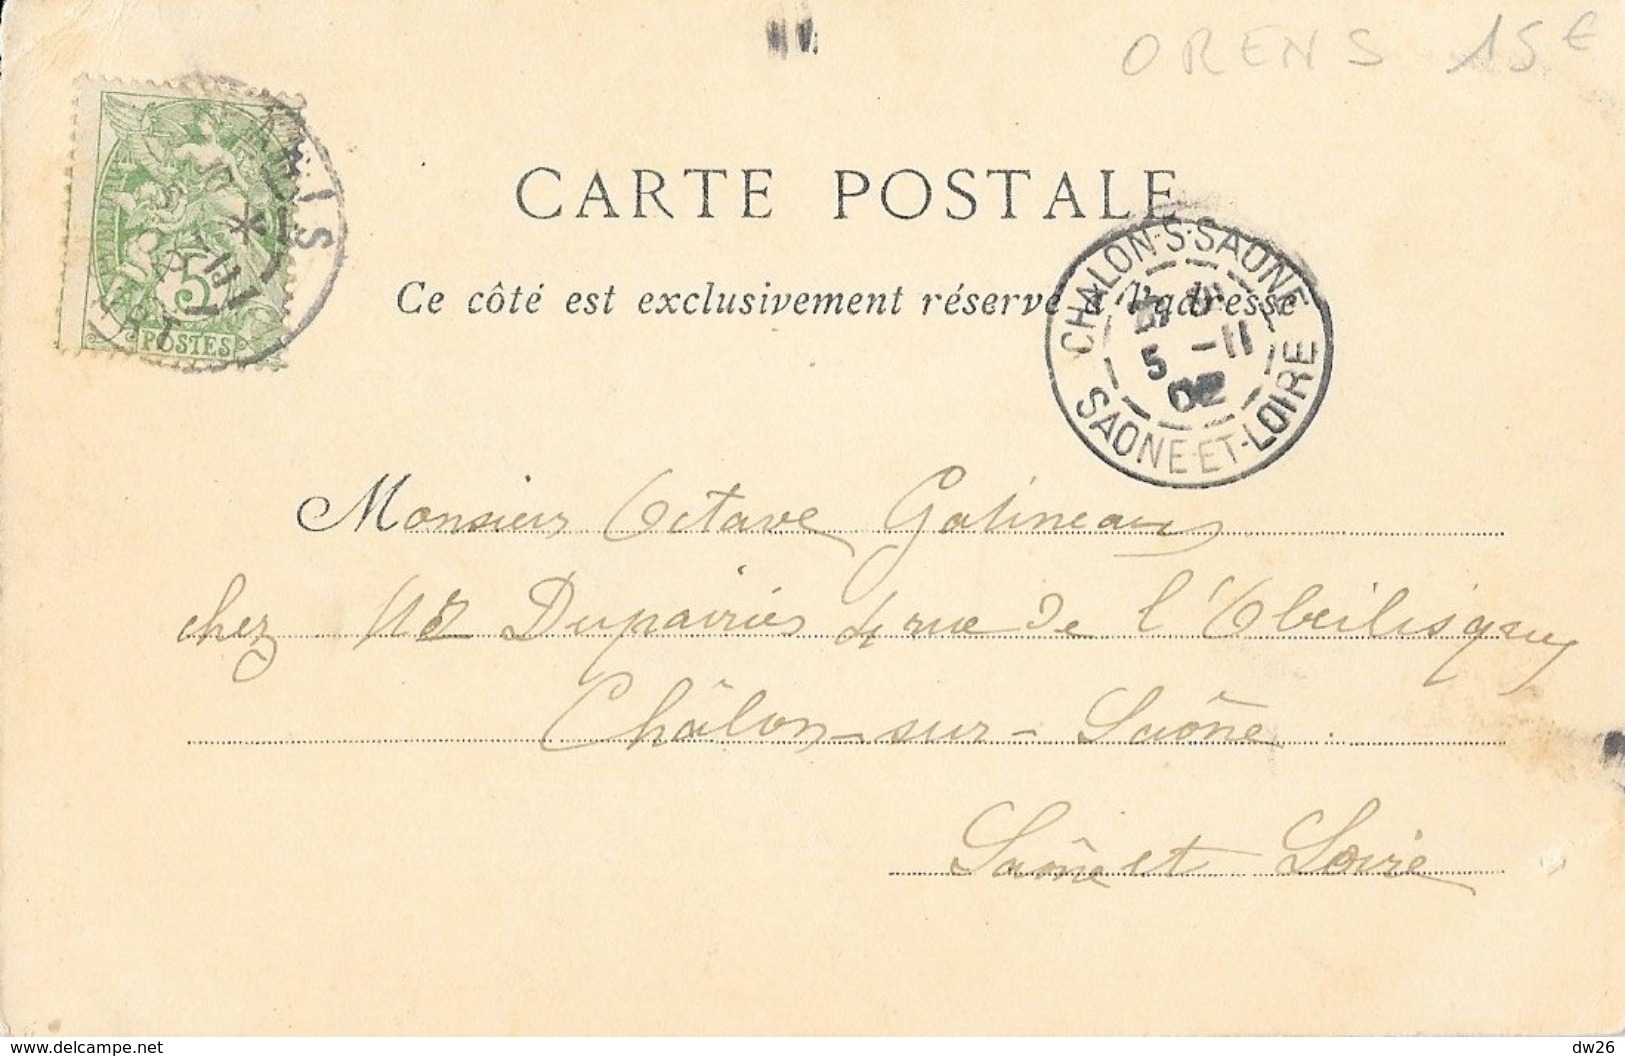 ORENS 15€
CARTE POSTALE
Ce côté est exclusivement réservé à l'adresse
CHALON-S-SAONE
5 -11
02
SAONE-ET-LOIRE
PARIS
5
POSTES
Monsieur Octave Gatineau
chez Mr Dupairiés 4 rue de l'Obeilisque
Châlon-sur-Saône
Saône et Loire
www.delcampe.net
dw26